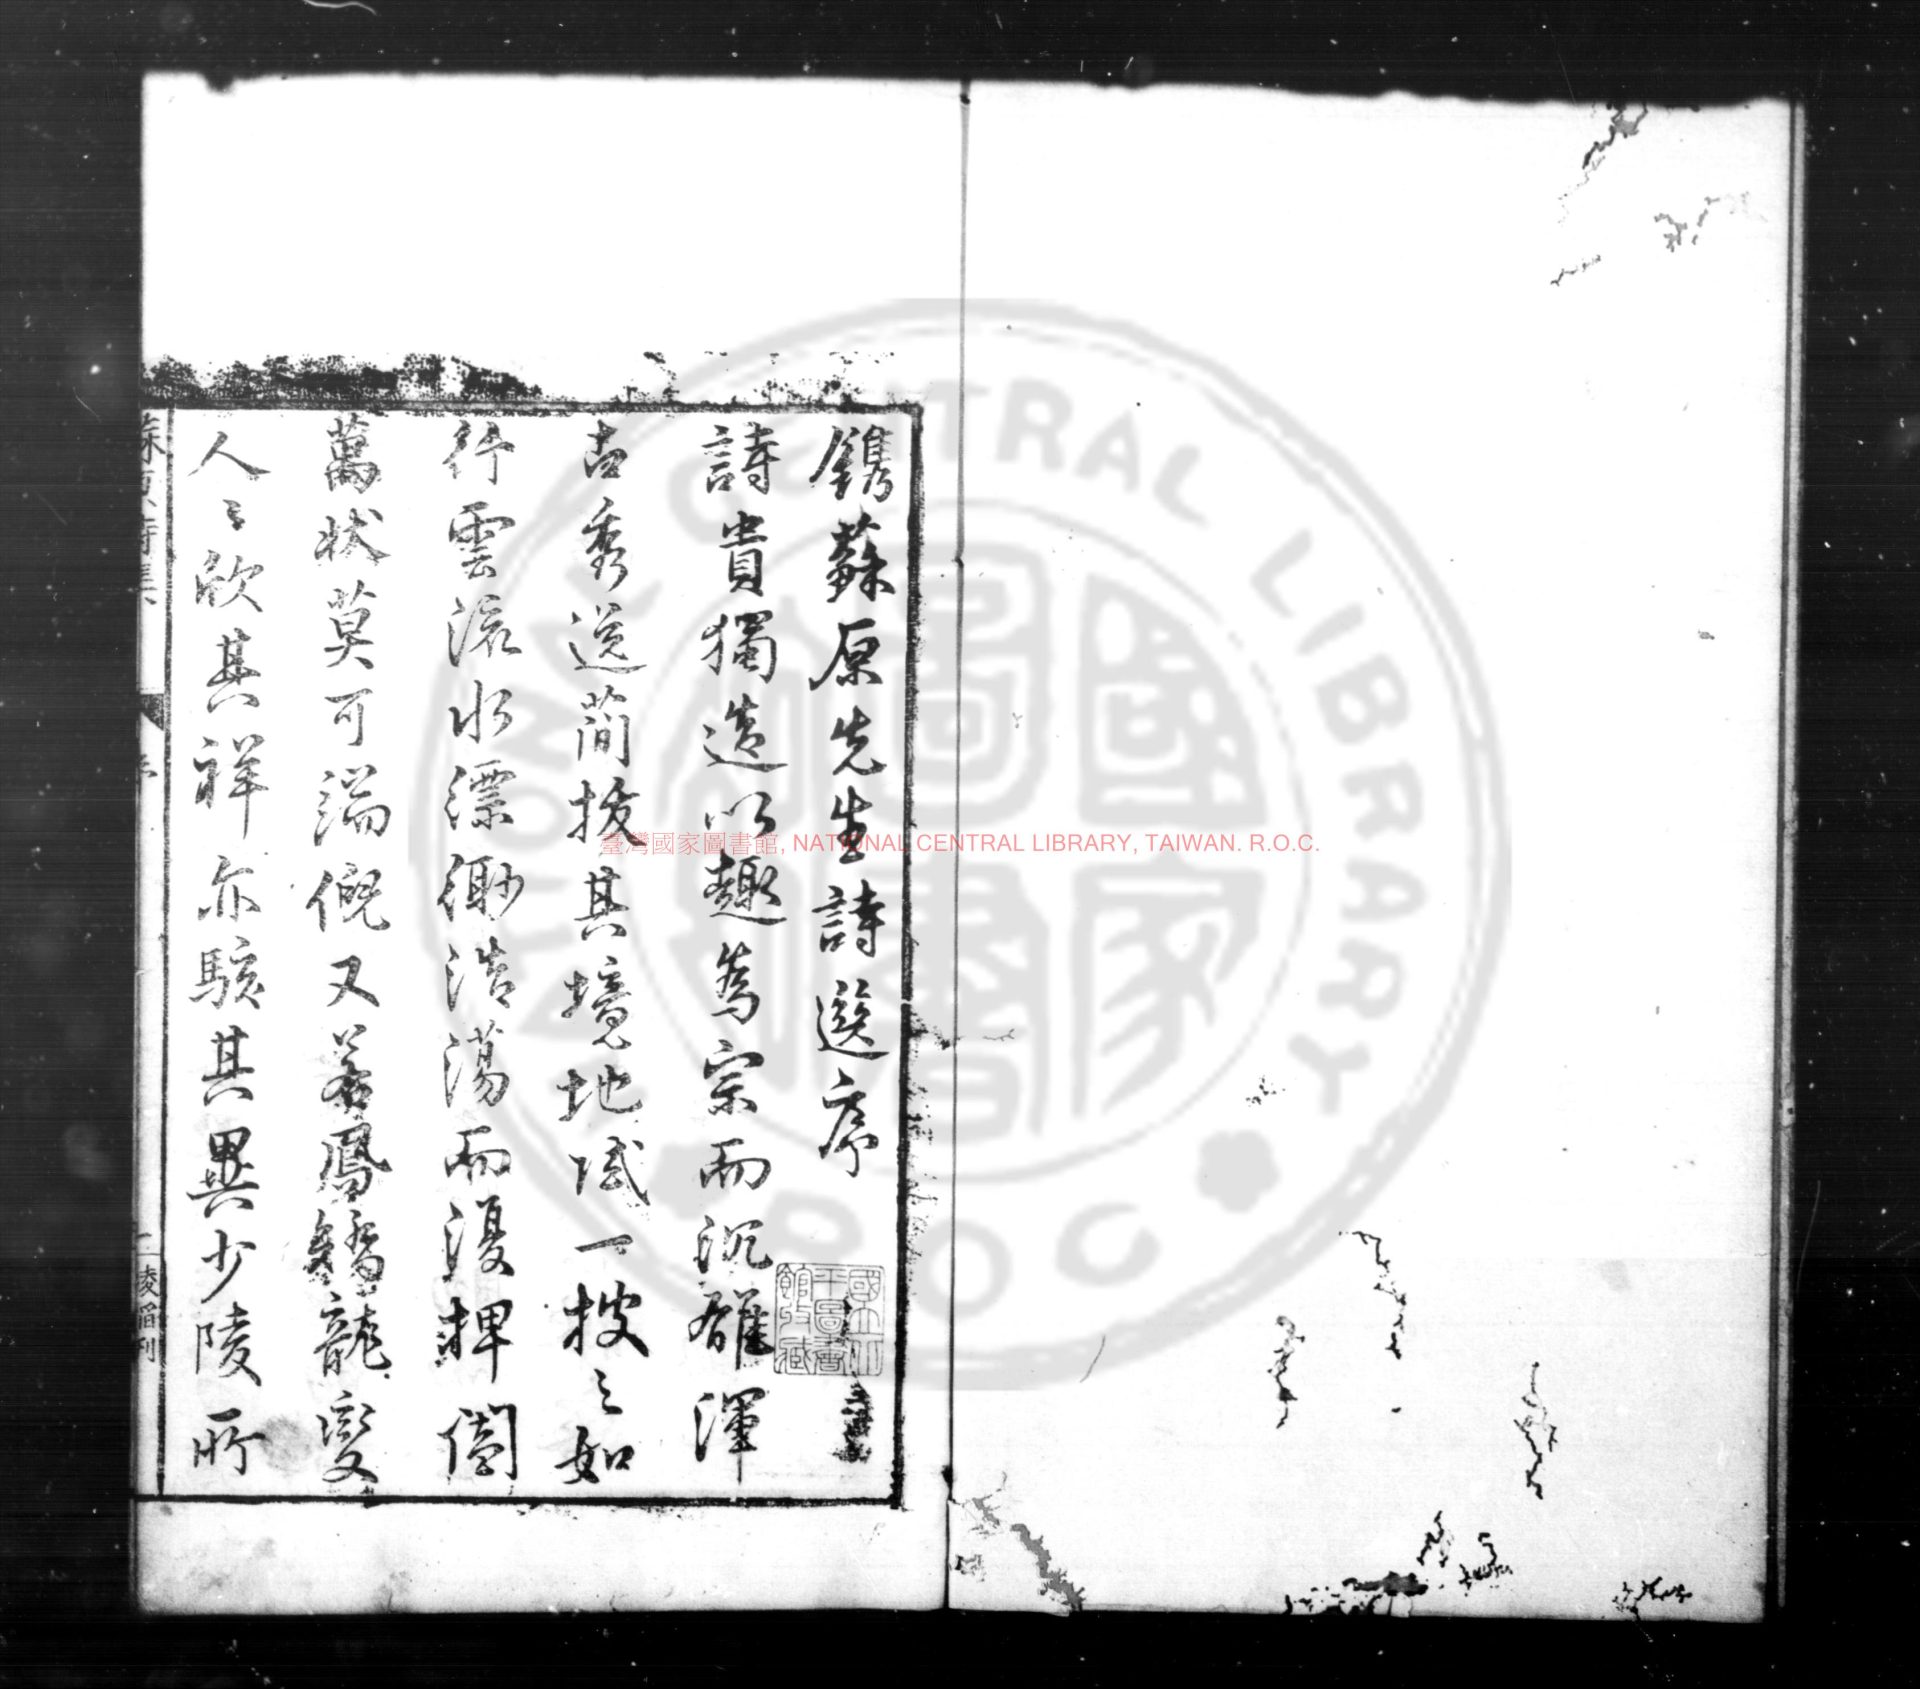 鐫蘇原先生詩選序
詩貴獨造以趣爲宗而沉雄渾
古秀逸蕳拔其境地咸一披之如
行雲流水漂緲浩蕩而漫捭闔
萬狀莫可端倪又若鳳翥龍變
人〻欣其祥亦駭其異少陵所
蘇原詩集
序
一
凌稻刊
國立中
央圖書
館收藏
臺灣國家圖書館, NATIONAL CENTRAL LIBRARY, TAIWAN. R.O.C.
NATIONAL CENTRAL LIBRARY
R.O.C
國家圖書